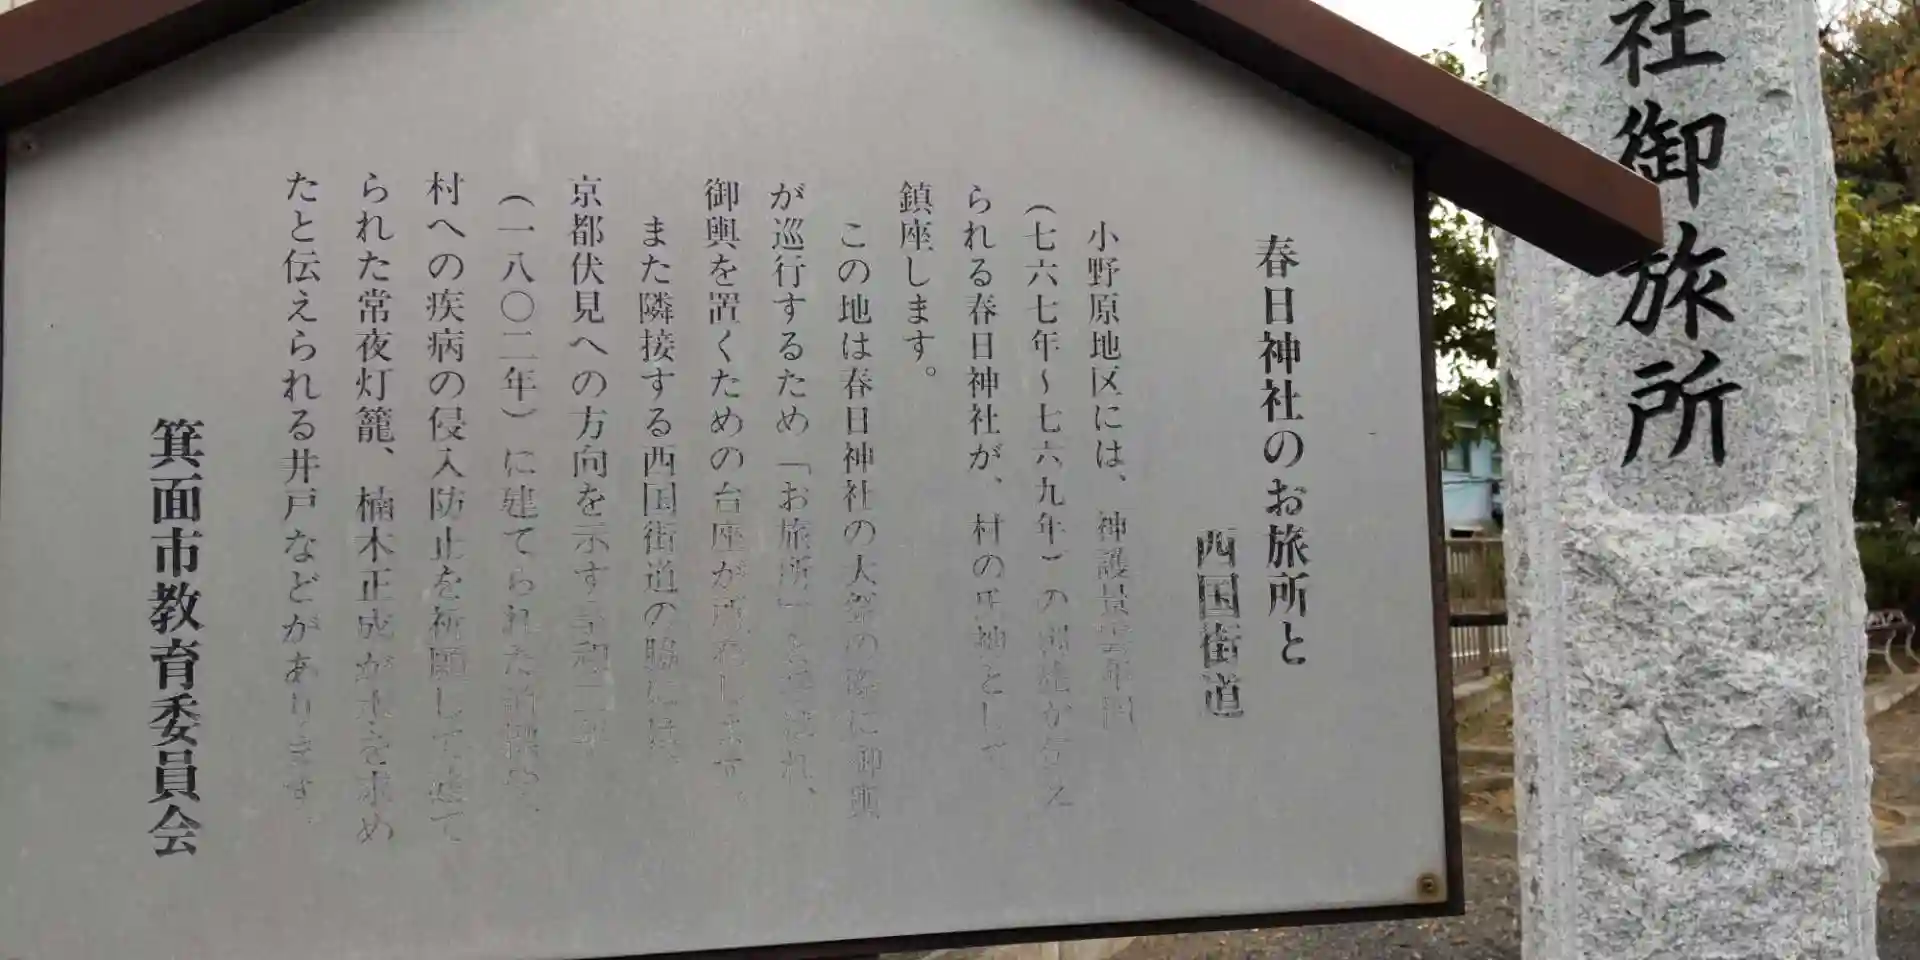 春日神社のお旅所と
西国街道
小野原地区には、神護景雲年間
(七六七年～七六九年)の創建が伝え
られる春日神社が、村の氏神として
鎮座します。
この地は春日神社の大祭の際に御輿
が巡行するため「お旅所」と呼ばれ、
御輿を置くための台座が所在します。
また隣接する西国街道の脇には、
京都伏見への方向を示す享和二年
(一八〇二年)に建てられた道標や、
村への疾病の侵入防止を祈願して建て
られた常夜灯籠、楠木正成が水を求め
たと伝えられる井戸などがあります。
箕面市教育委員会
社御旅所